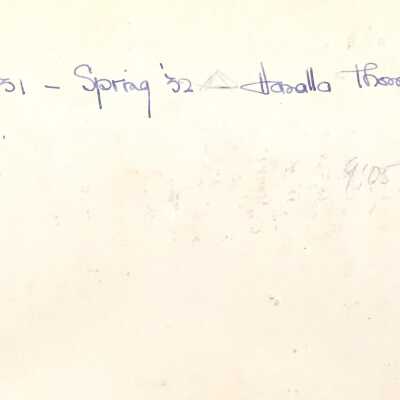 31 – Spring '32 – Haralla Thor
9.05